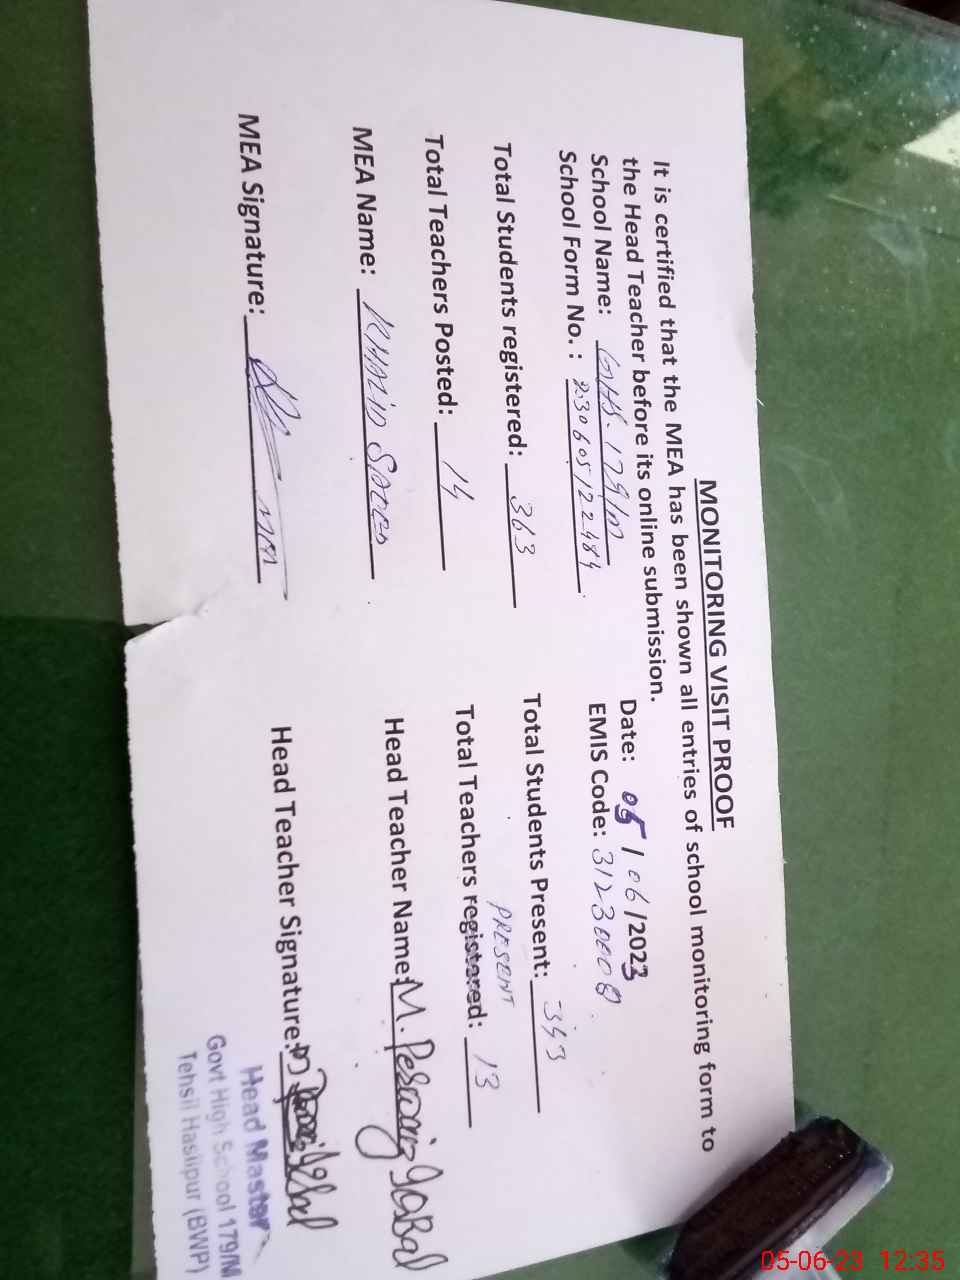 MONITORING VISIT PROOF
It is certified that the MEA has been shown all entries of school monitoring form to
the Head Teacher before its online submission.
School Name: GHS. 179/M Date: 05/06/2023
School Form No.: 230605122484 EMIS Code: 31230008
Total Students registered: 363 Total Students Present: 343
PRESENT
Total Teachers Posted: 14 Total Teachers registered: 13
MEA Name: KHALID Head Teacher Name: M. Pervaiz Iqbal
MEA Signature: Head Teacher Signature:
Head Master
Govt High School 179/M
Tehsil Hasilpur (BWP)
05-06-23 12:35